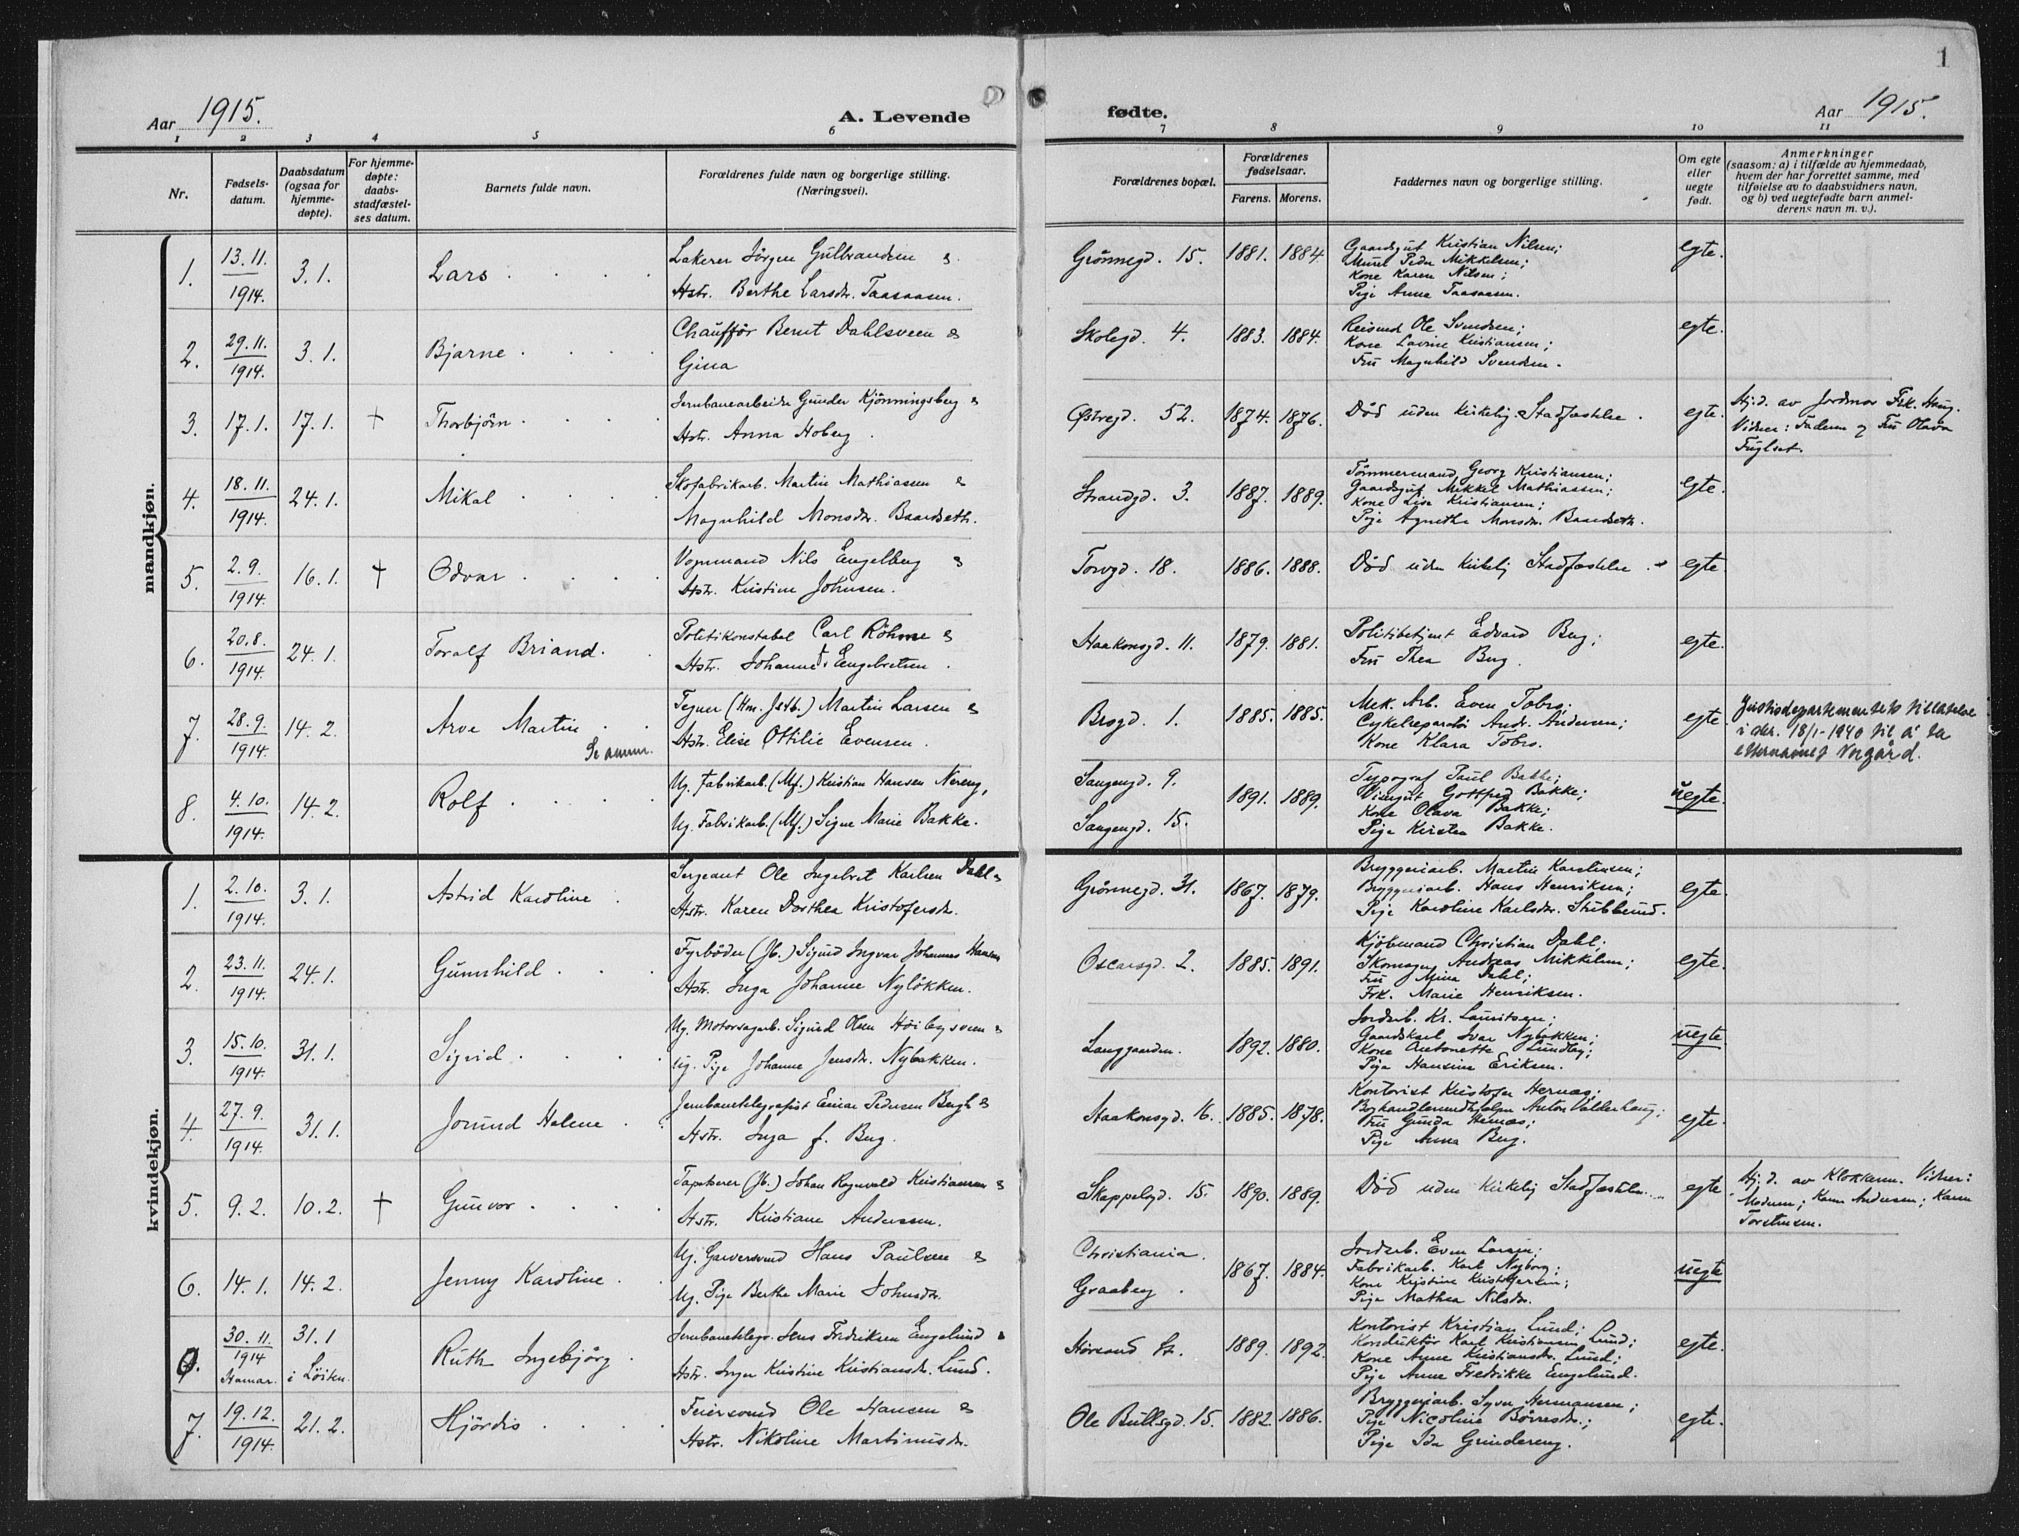 1
Aar 1915.
A. Levende
fødte.
Aar 1915.
1 2 3 4 5 6 7 8 9 10 11
Nr.
Fødsels-
datum.
Daabsdatum
(ogsaa for
hjemme-
døpte).
For hjemme-
døpte:
daabs-
stadfæstel-
ses datum.
Barnets fulde navn.
Forældrenes fulde navn og borgerlige stilling.
(Næringsvei).
Forældrenes bopæl.
Forældrenes
fødselsaar.
Farens. Morens.
Faddernes navn og borgerlige stilling.
Om egte
eller
uegte
født.
Anmerkninger
(saasom: a) i tilfælde av hjemmedaab,
hvem der har forrettet samme, med
tilføielse av to daabsvidners navn,
og b) ved uegtefødte barn anmel-
derens navn m. v.).
mandkjøn.
1. 13.11. 1914. 3.1. Lars
Lakerer Jörgen Gulbrandsen &
Hstr. Berthe Larsdr. Taasaasen.
Grönnegd. 15. 1881. 1884.
Gaardsgut Kristian Nilsen;
Murer Peder Mikkelsen;
Kone Karen Nilsen;
Pige Anna Taasaasen.
egte.
2. 29.11. 1914. 3.1. Bjarne
Chaufför Bernt Dahlsveen &
Gina
Skolegd. 4. 1883. 1884.
Reisend Ole Svendsen;
Kone Lovine Kristiansen;
Fru Magnhild Svendsen.
egte.
3. 17.1. 17.1. + Thorbjörn
Jernbanearbeider Gunder Kjönningsberg &
Hstr. Anna Hoberg.
Østregd. 52. 1874. 1876.
Död uden kirkelig Stadfæstelse.
egte.
Hj.d. av Jordmor Frk. Haug.
Vidner: Faderen og Fru Olava
Fuglset.
4. 18.11. 1914. 24.1. Mikal
Skofabrikarb. Martin Mathiassen &
Magnhild Monsdr. Baardseth.
Strandgd. 3. 1887. 1889.
Tömmermand Georg Kristiansen;
Gaardsgut Mikkel Mathiassen;
Kone Lise Kristiansen;
Pige Agnethe Monsdr. Baardseth.
egte.
5. 2.9. 1914. 16.1. + Odvar
Vognmand Nils Engelberg &
Hstr. Kristine Johnsen.
Torvgd. 18. 1886. 1888.
Död uden kirkelig Stadfæstelse.
egte.
6. 20.8. 1914. 24.1. Toralf Briand.
Politikonstabel Carl Röhme &
Hstr. Johanne f. Engebretsen.
Haakonsgd. 11. 1879. 1881.
Politibetjent Edvard Berg;
Fru Thea Berg.
egte.
7. 28.9. 1914. 14.2. Arve Martin
Se anmr.
Tegner (Hm. Jstb.) Martin Larsen &
Hstr. Elise Ottilie Evensen.
Brogd. 1. 1885. 1885.
Mek. Arb. Even Tobro;
Cykelreparatör Andr. Andersen;
Kone Klara Tobro.
egte
Justisdepartementets tillatelse
i skr. 18/1-1940 til å ta
etternavnet Norgård.
8. 4.10. 1914. 14.2. Rolf
Ug. Fabrikarb. (Mf.) Kristian Hansen Nereng,
Ug. Fabrikarb. (Mf.) Signe Marie Bakke.
Sangengd. 9.
Sangengd. 15.
1891. 1889.
Typograf Paul Bakke;
Visergut Gottfred Bakke;
Kone Olava Bakke;
Pige Kirsten Bakke.
uegte.
kvindekjøn.
1. 2.10. 1914. 3.1. Astrid Karoline
Sergeant Ole Ingebret Karlsen Dahl &
Hstr. Karen Dorthea Kristofersdr.
Grönnegd. 31. 1867. 1879.
Bryggeriarb. Martin Karstensen;
Bryggeriarb. Hans Henriksen;
Pige Karoline Karlsdr. Stubberud.
egte.
2. 23.11. 1914. 24.1. Gunnhild
Fyrböder (Jb.) Sigurd Ingvar Johannes Hansen
Hstr. Inga Johanne Nylökken.
Oscarsgd. 2. 1885. 1891.
Kjöbmand Christian Dahl;
Skomager Andreas Mikkelsen;
Fru Mina Dahl;
Frk. Marie Henriksen.
egte.
3. 15.10. 1914. 31.1. Sigrid
Ug. Motorsagarb. Sigurd Olsen Höibysveen &
ug. Pige Johanne Jensdr. Nybakken.
Langgaarden. 1892. 1880.
Jordarb. Kr. Lauritsen;
Gaardskarl Ivar Nybakken;
Kone Antonette Lundby;
Pige Hansine Eriksen.
uegte.
4. 27.9. 1914. 31.1. Jorund Helene
Jernbanetelegrafist Einar Pedersen Bergh &
Hstr. Inga f. Berg.
Haakonsgd. 16. 1885. 1878.
Kontorist Kristofer Hernæs;
Boghandlermedhjælper Anton Vallerhaug;
Fru Gunda Hernæs;
Pige Anna Berg.
egte.
5. 9.2. 10.2. + Gunvor
Tapetserer (Jb.) Johan Ragnvald Kristiansen &
Hstr. Kristiane Anderssen.
Skappelsgd. 15. 1890. 1889.
Död uden kirkelig Stadfæstelse.
egte
Hj.d. av Klokkeren. Vidner:
Moderen; Karen Andersen; Karen
Torstensen.
6. 14.1. 14.2. Jenny Karoline
Ug. Garversvend Hans Paulsen &
Ug. Pige Berthe Marie Johnsdr.
Christiania.
Graaberg.
1867. 1884.
Jordarb. Even Larsen;
Fabrikarb. Karl Nyborg;
Kone Kristine Kristoffersen;
Pige Mathea Nilsdr.
uegte
0. 30.11. 1914 Hamar. 31.1 i Löiten. Ruth Ingebjörg.
Jernbanetelegr. Jens Fredriksen Engelund &
Hstr. Inger Kristine Kristiansdr. Lund.
Hörsand St. 1889. 1892.
Kontorist Kristian Lund;
Konduktör Karl Kristiansen Lund;
Kone Anne Kristiansdr. Lund;
Pige Anne Fredrikke Engelund.
egte.
7. 19.12. 1914. 21.2. Hjördis
Feiersvend Ole Hansen &
Hstr. Nikoline Martinusdr.
Ole Bullsgd. 15. 1882. 1886.
Bryggeriarb. Syver Hermansen;
Pige Nicoline Börresdr.;
Pige Ida Grindereng.
egte.